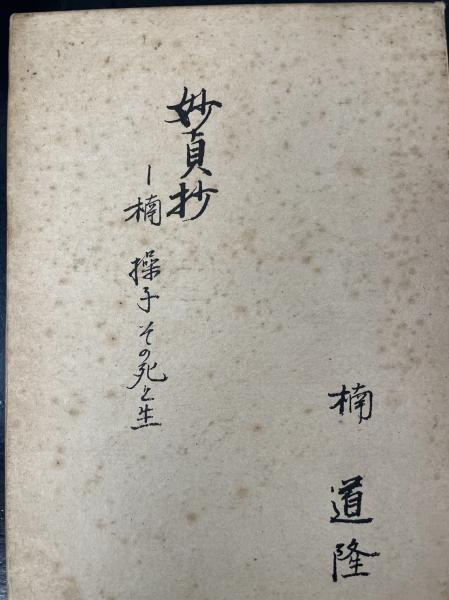 妙貞抄
―楠 操子その死と生
楠 道隆